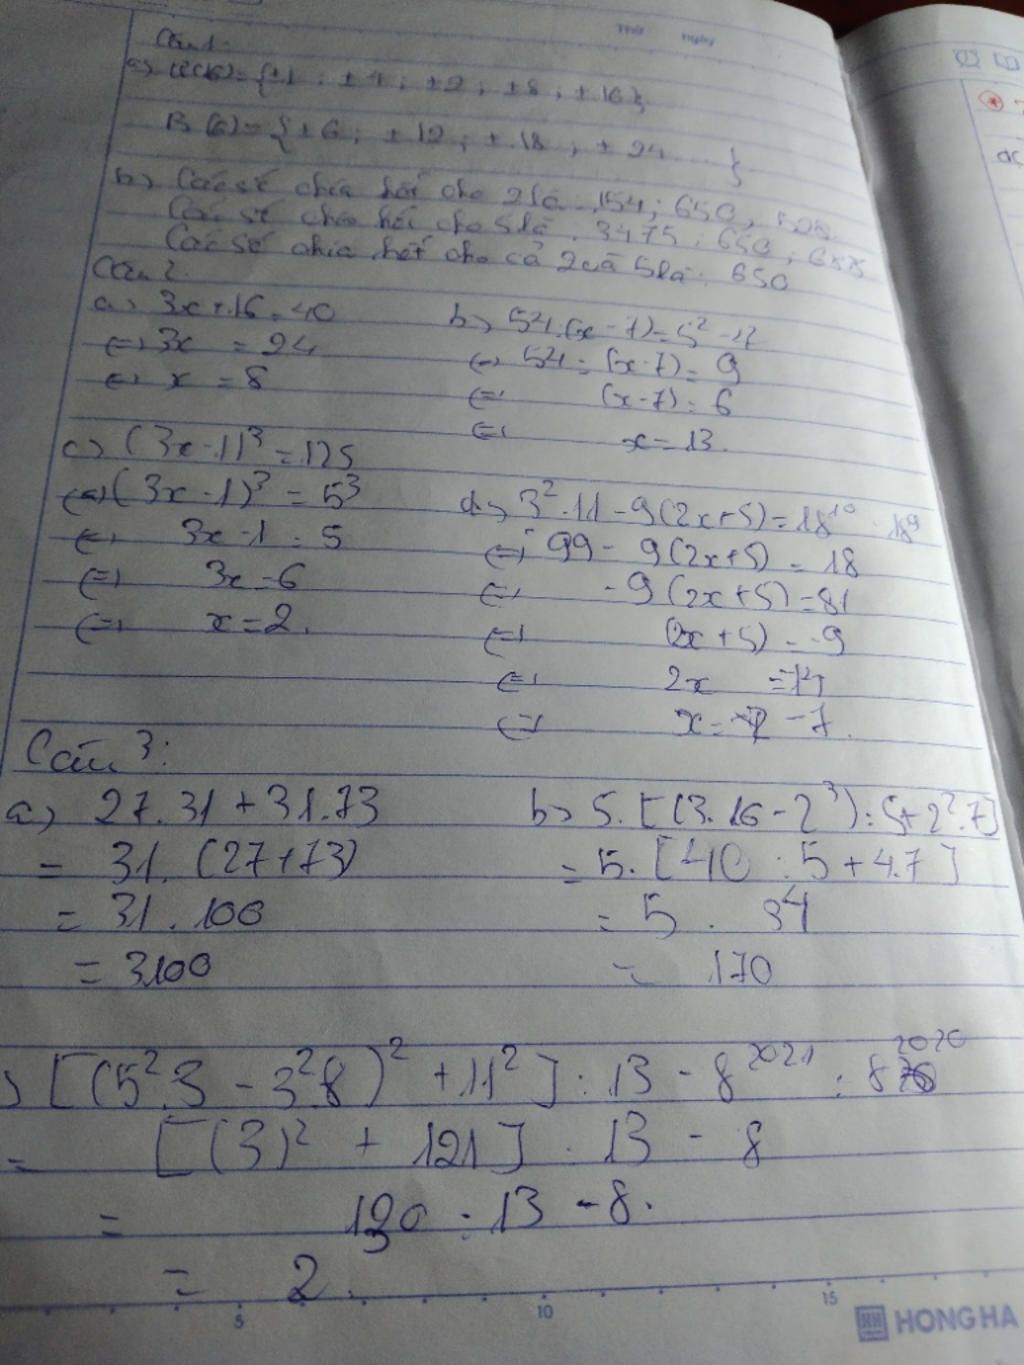 Thứ ngày
Câu 1:
a) Ư(16) = {±1 ; ±4 ; ±2 ; ±8 ; ±16}
B(6) = {±6 ; ±12 ; ±18 ; ±24 ... }
b) Các số chia hết cho 2 là: 154 ; 650 ;
Các số chia hết cho 5 là: 3475 ; 650 ;
Các số chia hết cho cả 2 và 5 là: 650
Câu 2.
a) 3x + 16 = 40
⇔ 3x = 24
⇔ x = 8
b) 54:(x-7) = 5² - 4²
⇔ 54 : (x-7) = 9
⇔ (x-7) = 6
⇔ x = 13.
c) (3x-1)³ = 125
⇔ (3x-1)³ = 5³
⇔ 3x-1 = 5
⇔ 3x = 6
⇔ x = 2.
d) 3².11 - 9(2x+5) = 18¹⁰ : 18⁹
⇔ 99 - 9(2x+5) = 18
⇔ -9(2x+5) = 81
⇔ (2x+5) = -9
⇔ 2x = -14
⇔ x = -7.
Câu 3:
a) 27.31 + 31.73
= 31.(27+73)
= 31.100
= 3100
b) 5.[(3.16 - 2³):5 + 2².7]
= 5.[40 : 5 + 4.7]
= 5 . 34
= 170
) [(5².3 - 3².8)² + 11²] : 13 - 8²⁰²¹ : 8²⁰²⁰
= [(3)² + 121] : 13 - 8
= 130 : 13 - 8.
= 2.
5 10 15
HH HONG HA